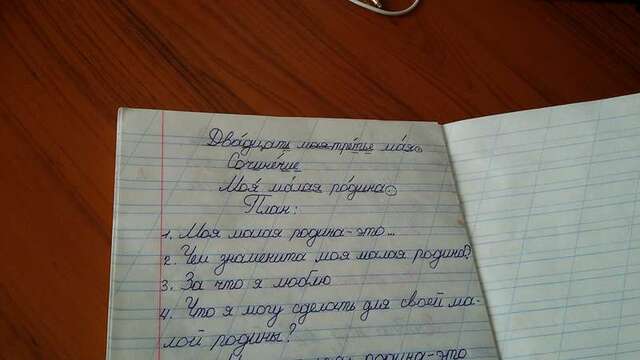 Двадцать моя третье мая.
Сочинение
Моя малая родина.
План:
1. Моя малая родина-это...
2. Чем знаменита моя малая родина?
3. За что я люблю
4. Что я могу сделать для своей ма-
лой родины?
родина-это